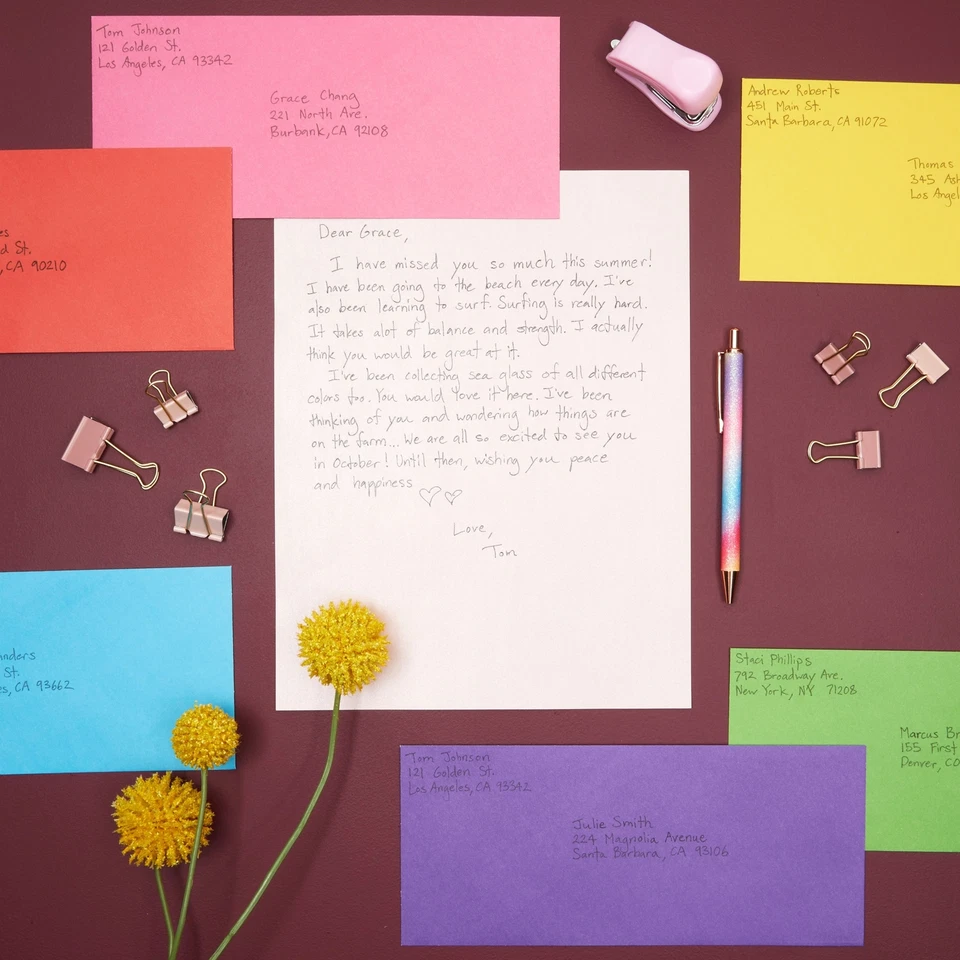 Tom Johnson
121 Golden St.
Los Angeles, CA 93342
Grace Chang
221 North Ave.
Burbank, CA 92108
Andrew Roberts
451 Main St.
Santa Barbara, CA 91072
Thomas
345 Ash
Los Angel
es
d St.
, CA 90210
Dear Grace,
I have missed you so much this summer!
I have been going to the beach every day. I've
also been learning to surf. Surfing is really hard.
It takes alot of balance and strength. I actually
think you would be great at it.
I've been collecting sea glass of all different
colors too. You would love it here. I've been
thinking of you and wondering how things are
on the farm... We are all so excited to see you
in October! Until then, wishing you peace
and happiness
Love,
Tom
anders
St.
es, CA 93662
Staci Phillips
792 Broadway Ave.
New York, NY 71208
Marcus Br
155 First
Denver, CO
Tom Johnson
121 Golden St.
Los Angeles, CA 93342
Julie Smith
224 Magnolia Avenue
Santa Barbara, CA 93106